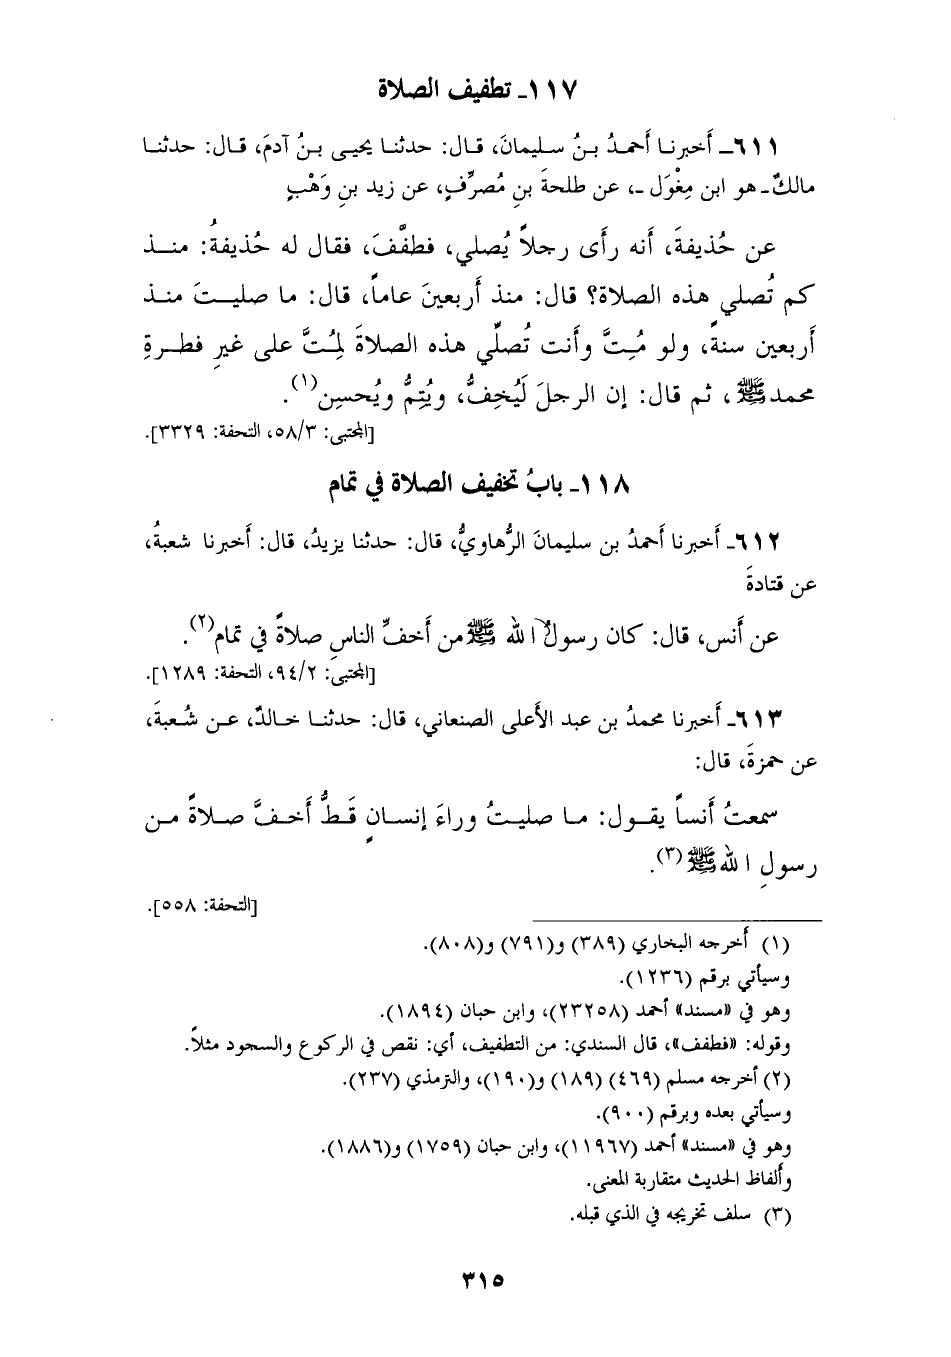 ١١٧ـ تطفيف الصلاة
٦١١ـ أخبرنا أحمدُ بـنُ سـليمانَ، قـال: حدثنـا يحيـى بـنُ آدمَ، قـال: حدثنـا
مالكٌ ـ هو ابن مِغْوَل ـ، عن طلحةَ بنِ مُصرِّفٍ، عن زيد بنِ وَهْبٍ
عن حُذيفةَ، أنه رأى رجلاً يُصلي، فطفَّفَ، فقال له حُذيفةُ: منـذ
كم تُصلي هذه الصلاة؟ قال: منذ أربعينَ عاماً، قال: ما صليـتَ منـذ
أربعين سنةً، ولو مُـِتَّ وأنت تُصلِّي هذه الصلاةَ لَمُـِتَّ على غيرِ فطـرةِ
محمد ﷺ، ثم قال: إن الرجلَ لَيُخِفُّ، ويُتِمُّ ويُحسِن(١).
[المجتبى: ٥٨/٣، التحفة: ٣٣٢٩].
١١٨ـ بابُ تخفيف الصلاة في تمام
٦١٢ـ أخبرنا أحمدُ بن سليمانَ الرُّهاويُّ، قال: حدثنا يزيدُ، قال: أخبرنا شعبةُ،
عن قتادةَ
عن أنس، قال: كان رسولُ الله ﷺ من أخفِّ الناسِ صلاةً في تمام(٢).
[المجتبى: ٩٤/٢، التحفة: ١٢٨٩].
٦١٣ـ أخبرنا محمدُ بن عبد الأعلى الصنعاني، قال: حدثنـا خـالدٌ، عـن شُـعبةَ،
عن حمزةَ، قال:
سمعتُ أنساً يقـول: مـا صليـتُ وراءَ إنسـانٍ قَـطُّ أخـفَّ صـلاةً مـن
رسولِ الله ﷺ(٣).
[التحفة: ٥٥٨].
(١) أخرجه البخاري (٣٨٩) و(٧٩١) و(٨٠٨).
وسيأتي برقم (١٢٣٦).
وهو في «مسند» أحمد (٢٣٢٥٨)، وابن حبان (١٨٩٤).
وقوله: «فطفف»، قال السندي: من التطفيف، أي: نقص في الركوع والسجود مثلاً.
(٢) أخرجه مسلم (٤٦٩) (١٨٩) و(١٩٠)، والترمذي (٢٣٧).
وسيأتي بعده وبرقم (٩٠٠).
وهو في «مسند» أحمد (١١٩٦٧)، وابن حبان (١٧٥٩) و(١٨٨٦).
وألفاظ الحديث متقاربة المعنى.
(٣) سلف تخريجه في الذي قبله.
٣١٥